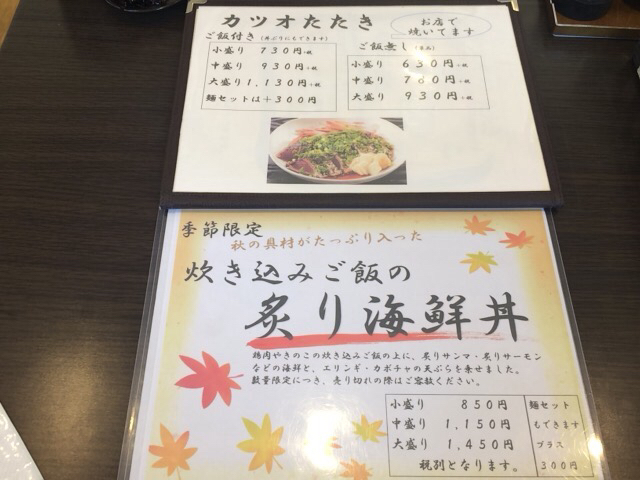 カツオたたき
お店で
焼いてます
ご飯付き(丼ぶりにもできます)
小盛り 730円+税
中盛り 930円+税
大盛り 1,130円+税
麺セットは+300円
ご飯無し(単品)
小盛り 630円+税
中盛り 760円+税
大盛り 930円+税
季節限定
秋の具材がたっぷり入った
炊き込みご飯の
炙り海鮮丼
鶏肉やきのこの炊き込みご飯の上に、炙りサンマ・炙りサーモン
などの海鮮と、エリンギ・カボチャの天ぷらを乗せました。
数量限定につき、売り切れの際はご容赦ください。
小盛り 850円
中盛り 1,150円
大盛り 1,450円
税別となります。
麺セット
もできます
プラス
300円